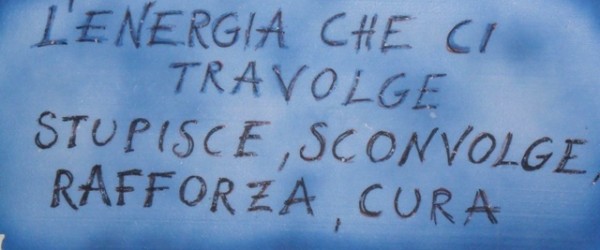 L'ENERGIA CHE CI
TRAVOLGE
STUPISCE, SCONVOLGE,
RAFFORZA, CURA